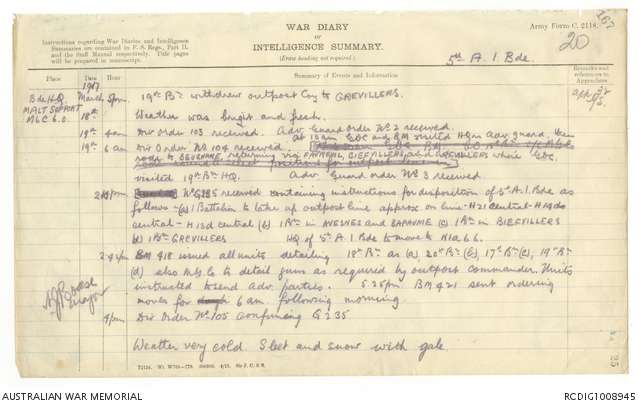 WAR DIARY
OF
INTELLIGENCE SUMMARY.
(Erase heading not required.)
Instructions regarding War Diaries and Intelligence
Summaries are contained in F. S. Regs., Part II.
and the Staff Manual respectively. Title pages
will be prepared in manuscript.
Army Form C. 2118.
167
20
5th A. I. Bde.
Place Date Hour Summary of Events and Information Remarks and references to Appendices
1917
Bde HQ March 8pm 19th Bn withdrew outpost Coy to GREVILLERS.
MALT SUPPORT 18th Weather was bright and fresh.
M6 C 6.0
19th 4am Div Order 103 received. Adv. Guard Order No 2 received.
at 10am GOC and BM visited HQrs adv. guard, then
19th 6am Div Order No 104 received.
road to BEUGNATRE, returning via FAVREUIL, BIEFVILLERS and GREVILLERS where GOC
visited 19th Bn HQ. Adv Guard order No 3 received
pm G235 received containing instructions for disposition of 5th A.I. Bde as
follows - (a) 1 Battalion to take up outpost line approx on line - H21 central - H19d
central - H13d central (b) 1 Bn in AVESNES and BAPAUME (c) 1 Bn in BIEFVILLERS
(d) 1 Bn GREVILLERS HQ of 5th A I Bde to move to H1a 6.6.
2.45pm BM 418 issued all units detailing 18th Bn as (a) 20th Bn (b), 17th Bn (c), 19th Bn
(d) also M.G. Co to detail guns as required by outpost commander. Units
instructed to send adv. parties. 5.25pm BM 421 sent ordering
moves for 6am following morning.
4pm Div Order No 105 confirming G235
Major
Weather very cold. Sleet and snow with gale.
AUSTRALIAN WAR MEMORIAL
RCDIG1008945